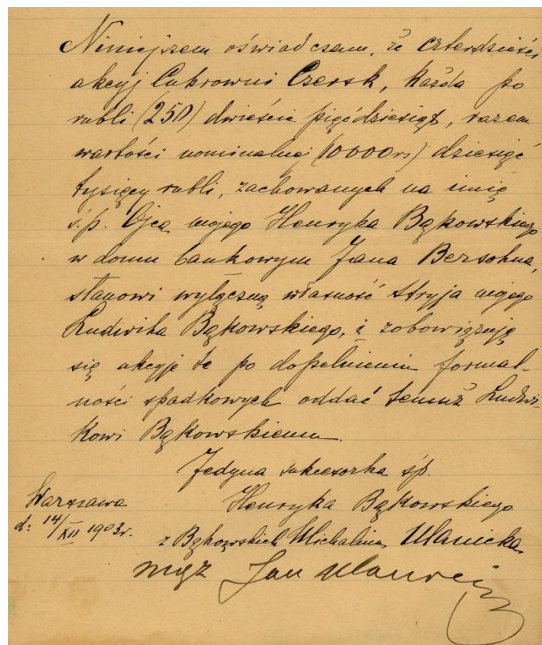 Niniejszem oświadczam, że czterdzieści
akcyj Cukrowni Czersk, każda po
rubli (250) dwieście pięćdziesiąt, razem
wartości nominalnej (10000 rs) dziesięć
tysięcy rubli, zachowanych na imię
ś.p. Ojca mojego Henryka Bąkowskiego
w domu bankowym Jana Bersohna,
stanowi wyłączną własność stryja mojego
Ludwika Bąkowskiego, i zobowiązuję
się akcyje te po dopełnieniu formal-
ności spadkowych oddać temuż Ludwi-
kowi Bąkowskiemu.
Jedyna sukcesorka śp.
Henryka Bąkowskiego
Warszawa
d: 14/XII 1903r.
z Bąkowskich Michalina Ulanicka
mąż Jan